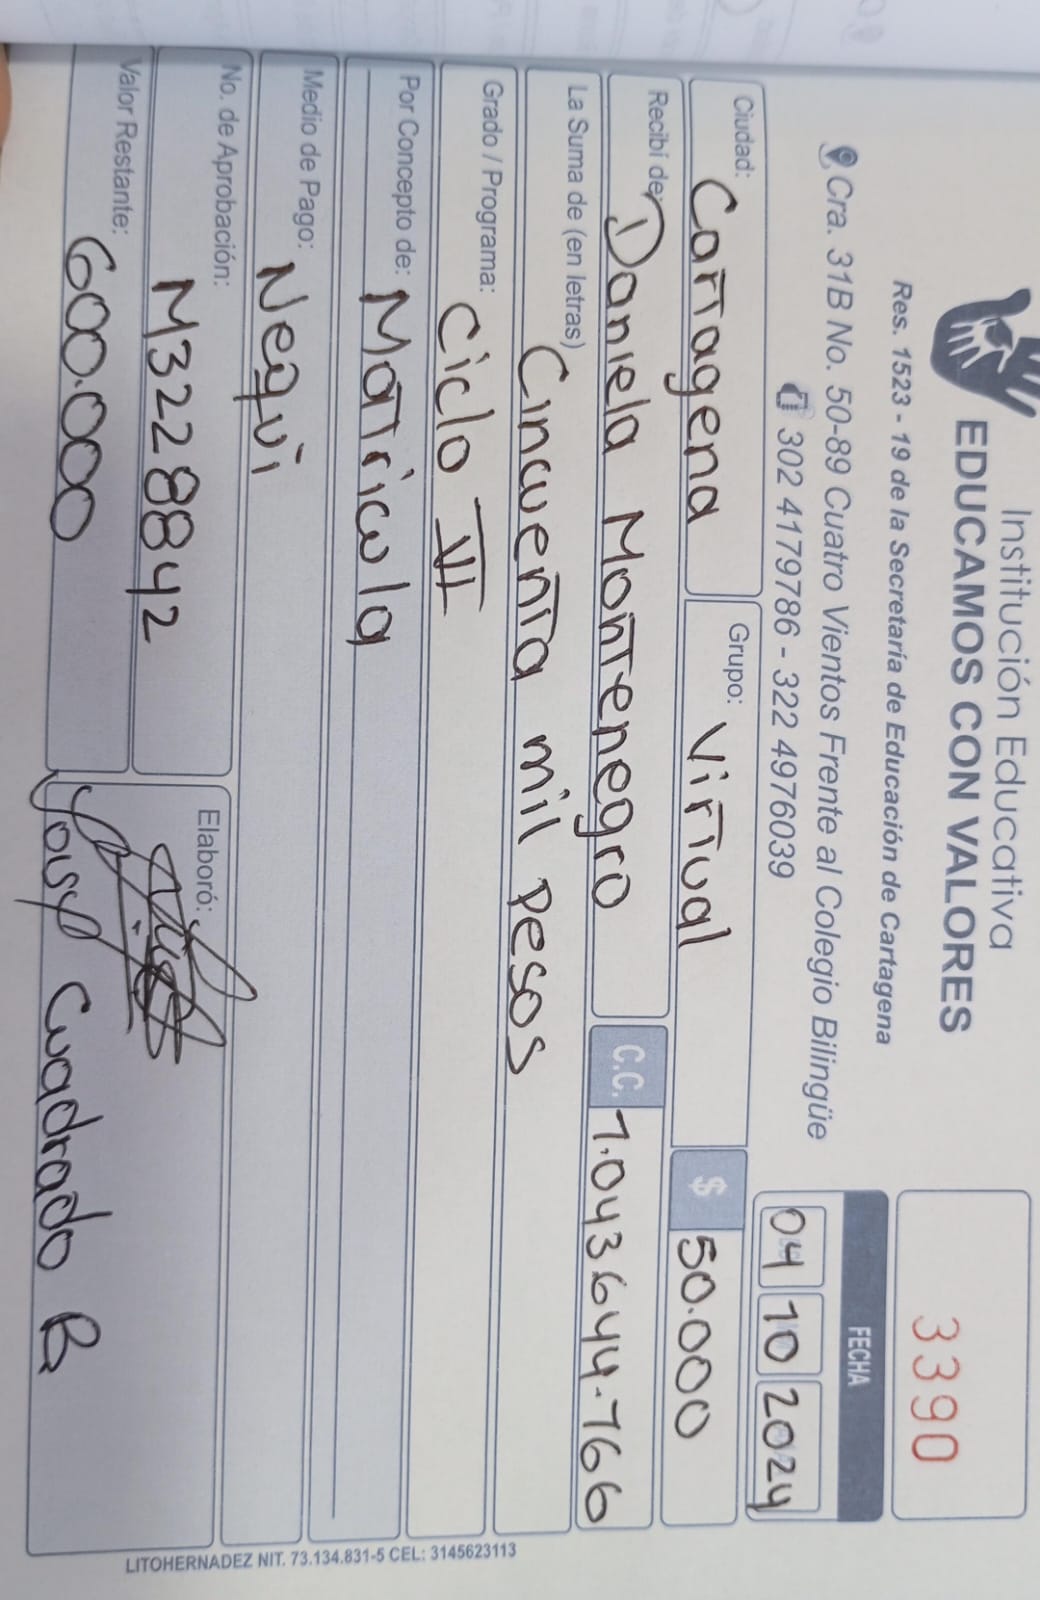 Institución Educativa
EDUCAMOS CON VALORES
Res. 1523 - 19 de la Secretaría de Educación de Cartagena
Cra. 31B No. 50-89 Cuatro Vientos Frente al Colegio Bilingüe
302 4179786 - 322 4976039
3390
FECHA
04 10 2024
Ciudad: Cartagena Grupo: Virtual $ 50.000
Recibí de: Daniela Montenegro C.C. 1.043.644.766
La Suma de (en letras) Cincuenta mil pesos
Grado / Programa: Ciclo VI
Por Concepto de: Matricula
Medio de Pago: Nequi
No. de Aprobación: M32288842 Elaboró:
Valor Restante: 600.000
Cuadrado B
LITOHERNADEZ NIT. 73.134.831-5 CEL: 3145623113